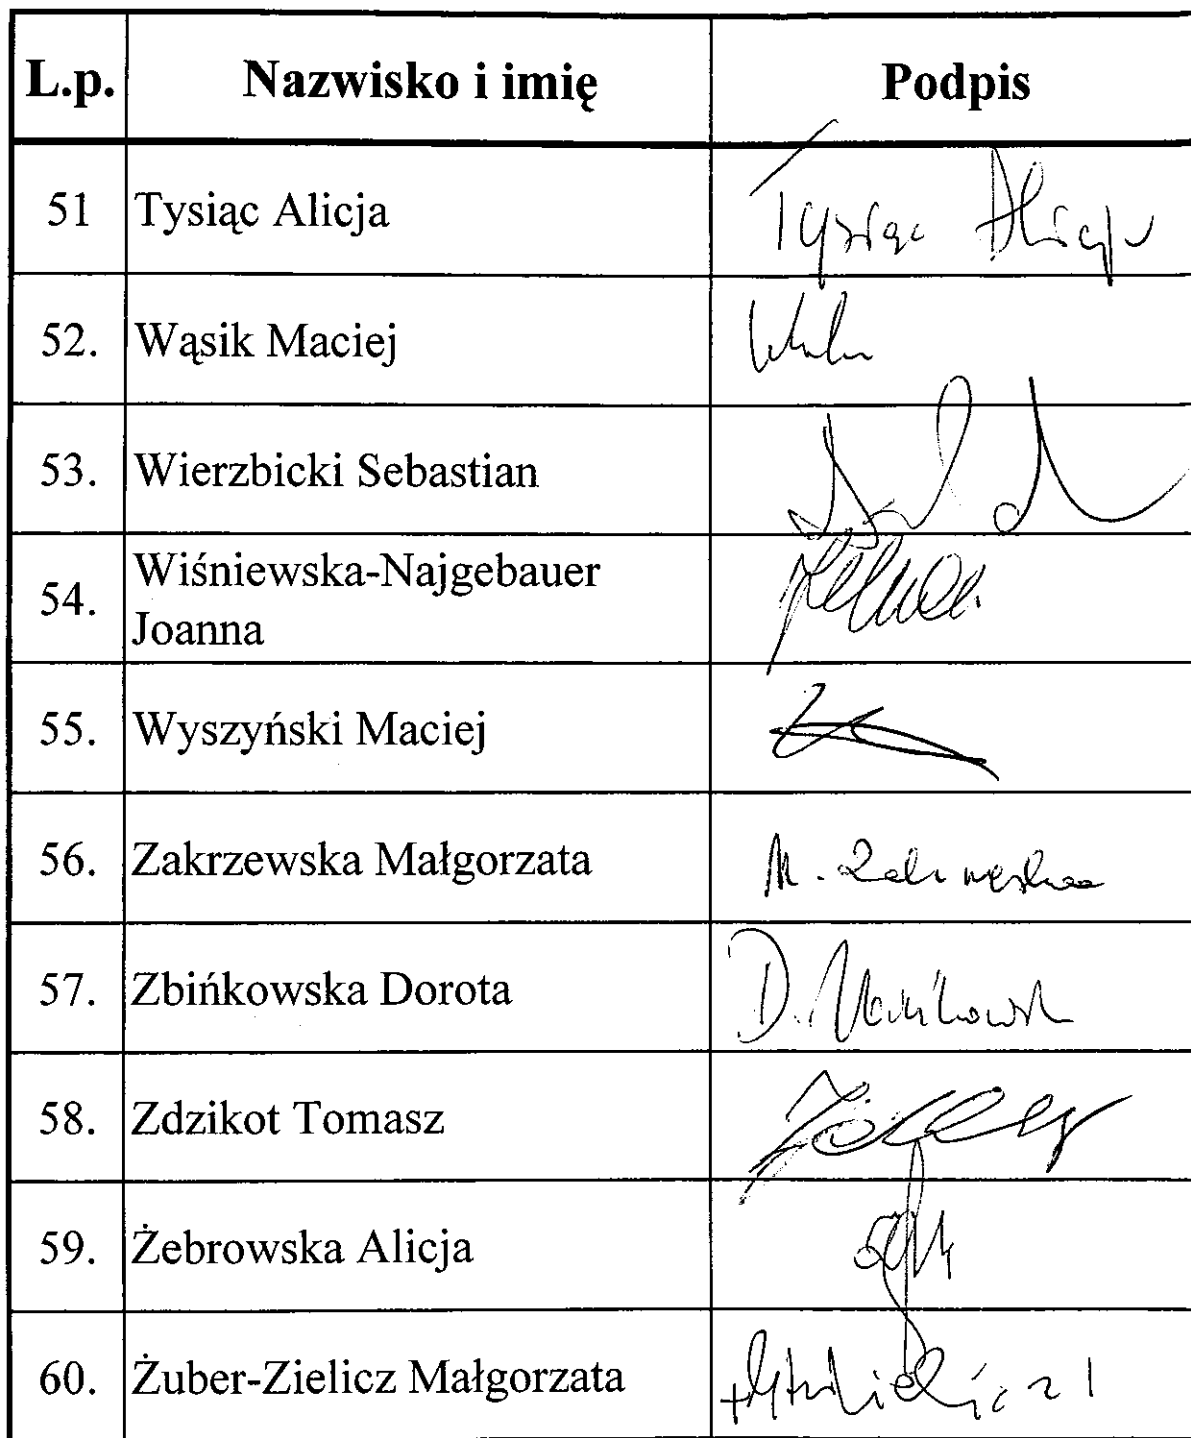 L.p. Nazwisko i imię Podpis
51 Tysiąc Alicja Tysiąc Alicja
52. Wąsik Maciej
53. Wierzbicki Sebastian
54. Wiśniewska-Najgebauer
Joanna
55. Wyszyński Maciej
56. Zakrzewska Małgorzata M. Zakrzewska
57. Zbińkowska Dorota D.
58. Zdzikot Tomasz
59. Żebrowska Alicja
60. Żuber-Zielicz Małgorzata